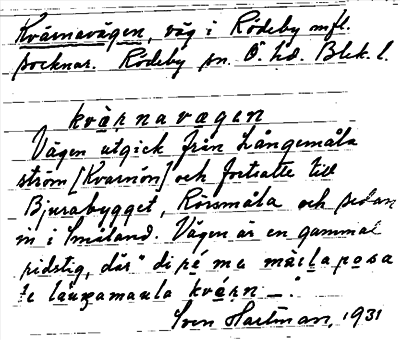 Kvärnavägen, väg i Rödeby mfl.
socknar. Rödeby sn. Ö. hd. Blek. l.
kvärnavägen
Vägen utgick från Långemåla
ström [Kvarnön] och fortsatte till
Bjurabygget, Rörsmåla och sedan
in i Småland. Vägen är en gammal
ridstig, där "di
kvärn
Sven Hartman, 1931